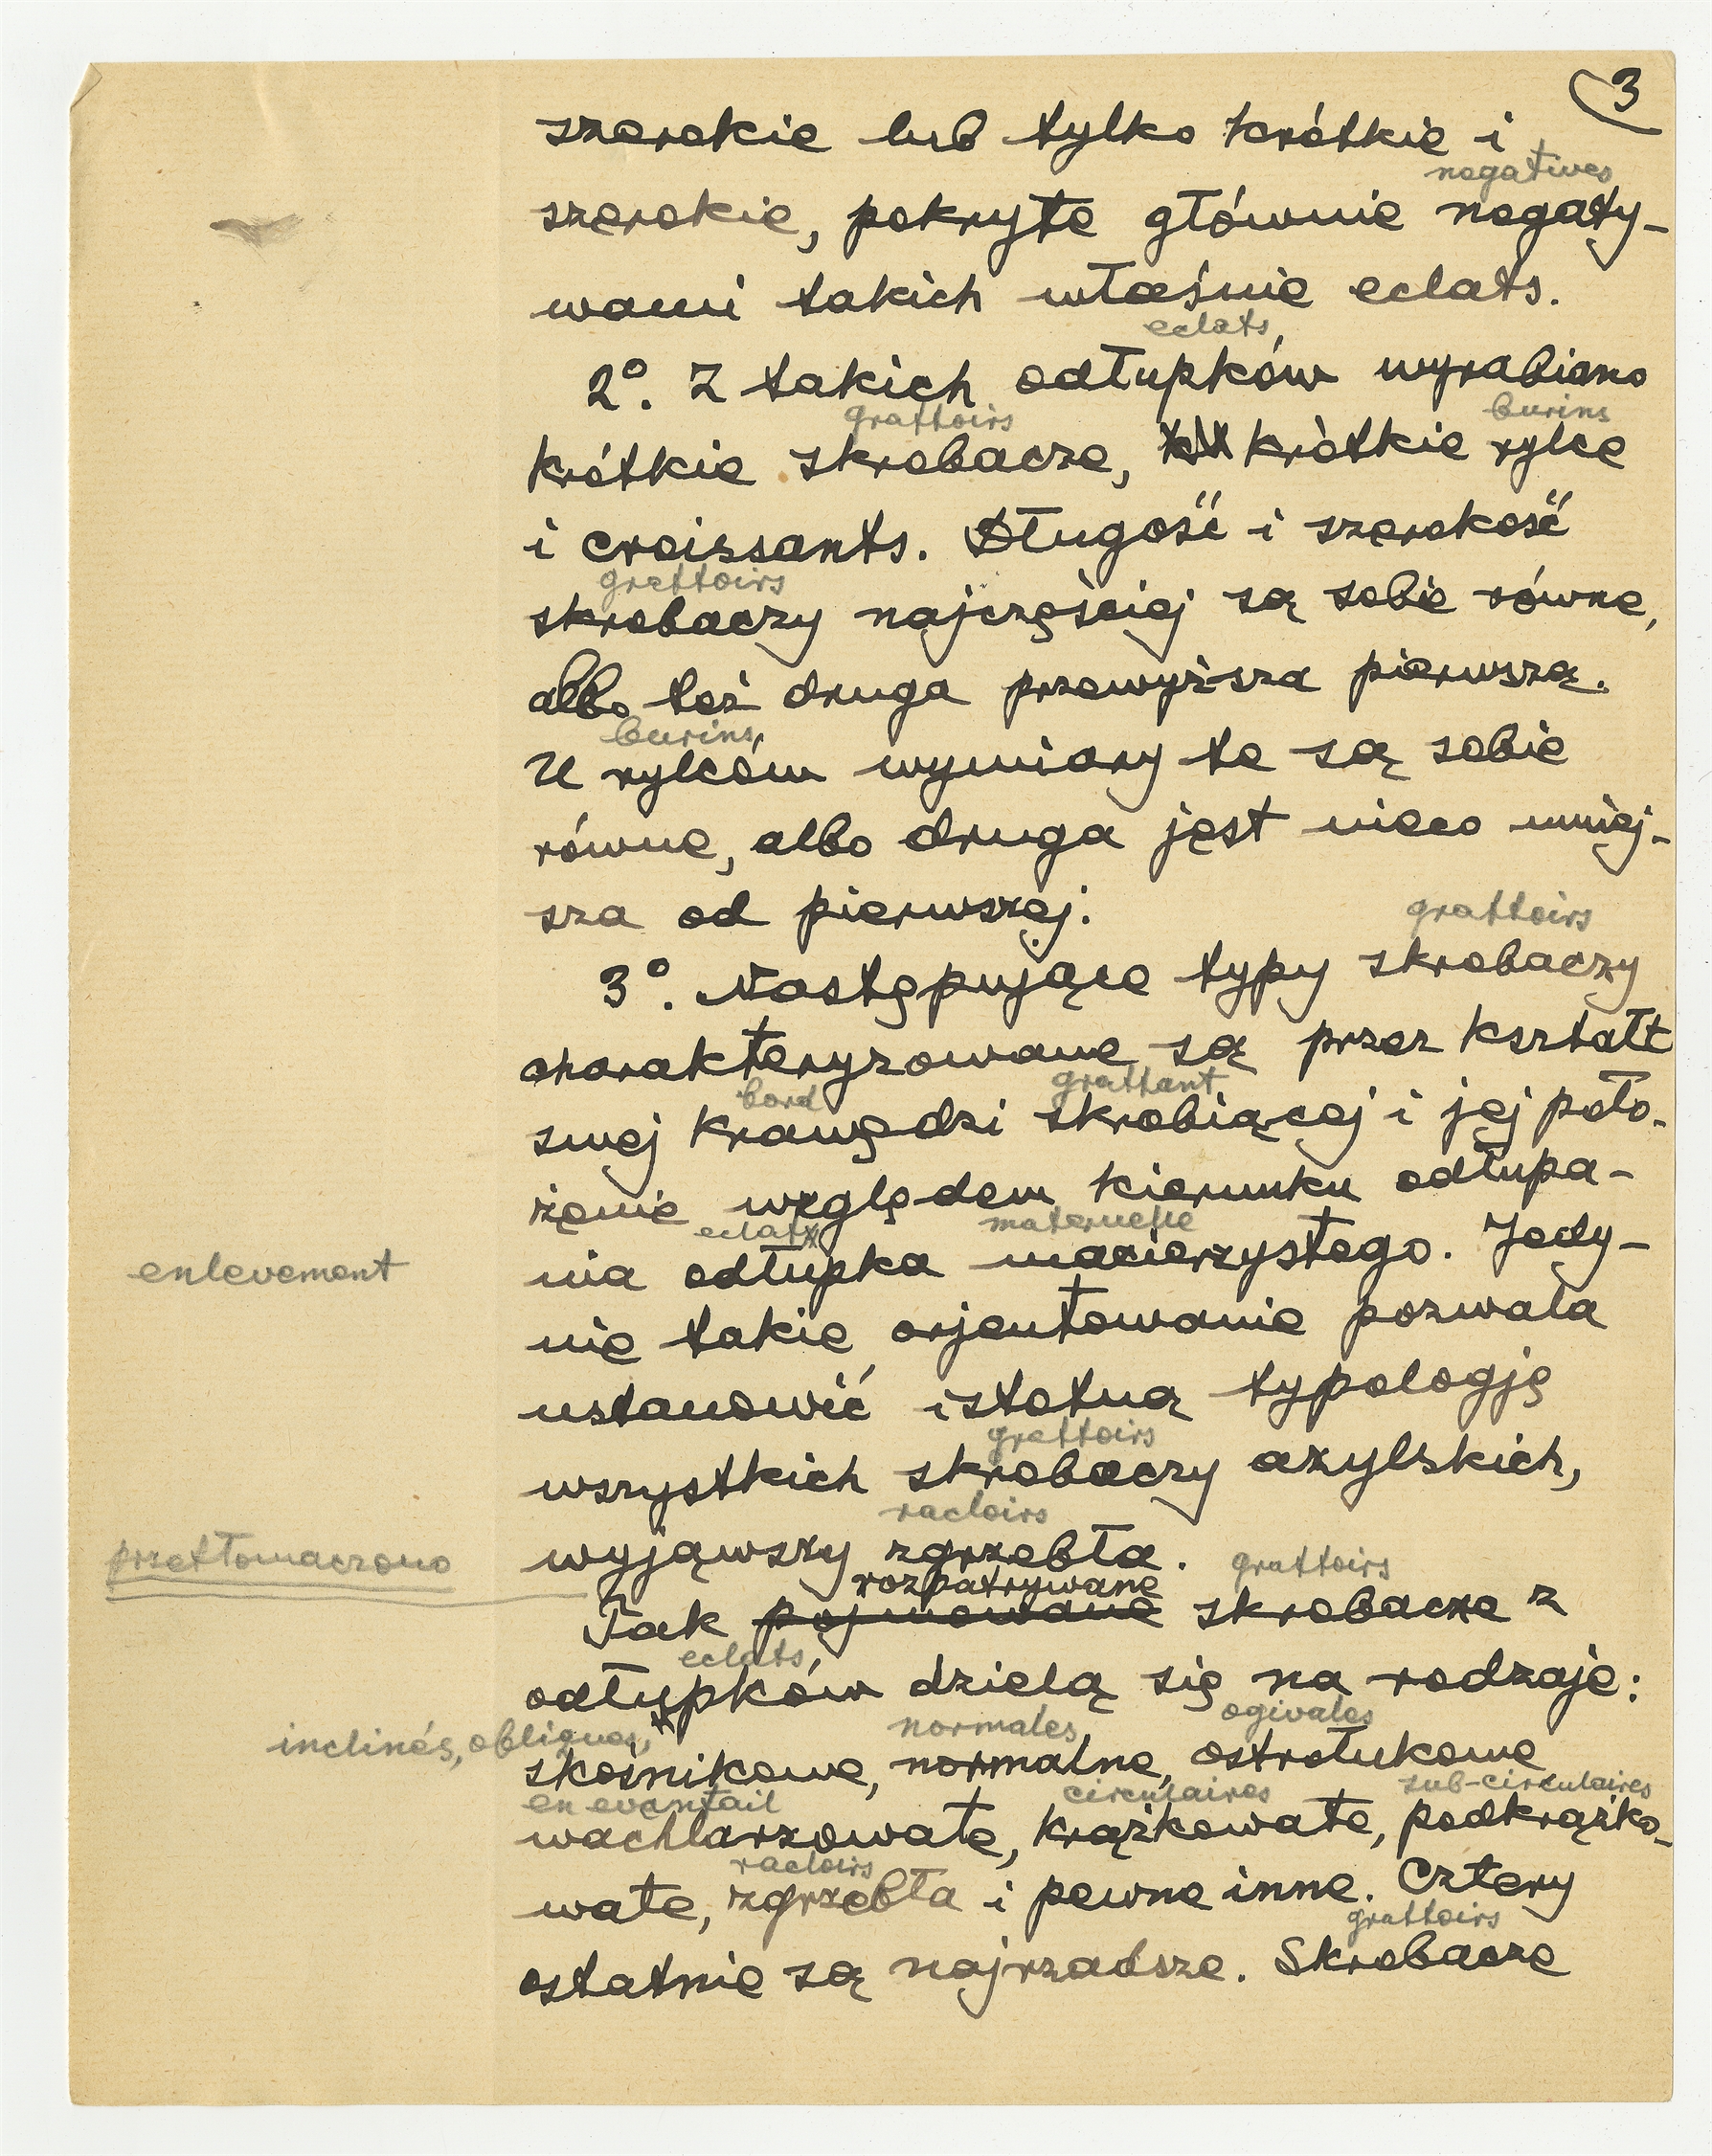 3
szerokie lub tylko krótkie i
negatives
szerokie, pokryte głównie negaty-
wami takich właśnie eclats.
eclats
2°. Z takich odłupków wyrabiano
grattoirs burins
krótkie skrobacze, krótkie rylce
i croissants. Długość i szerokość
grattoirs
skrobaczy najczęściej są sobie równe,
albo też druga przewyższa pierwszą.
burins
U rylców wymiary te są sobie
równe, albo druga jest nieco mniej-
sza od pierwszej.
grattoirs
3°. Następujące typy skrobaczy
charakteryzowane są przez kształt
bord grattant
swej krawędzi skrobiącej i jej poło-
żenie względem kierunku odłupa-
eclat maternelle
enlevement
nia odłupka macierzystego. Jedy-
nie takie orjentowanie pozwala
ustanowić istotną typologję
grattoirs
wszystkich skrobaczy azylskich,
racloirs
wyjąwszy zgrzebła.
przetłomaczono
rozpatrywane grattoirs
Tak pojmowane skrobacze z
eclats
odłupków dzielą się na rodzaje:
inclinés, obliques, normales ogivales
skośnikowe, normalne, ostrołukowe
en evantail circulaires sub-circulaires
wachlarzowate, krążkowate, podkrążko-
racloirs
wate, zgrzebła i pewne inne. Cztery
grattoirs
ostatnie są najrzadsze. Skrobacze